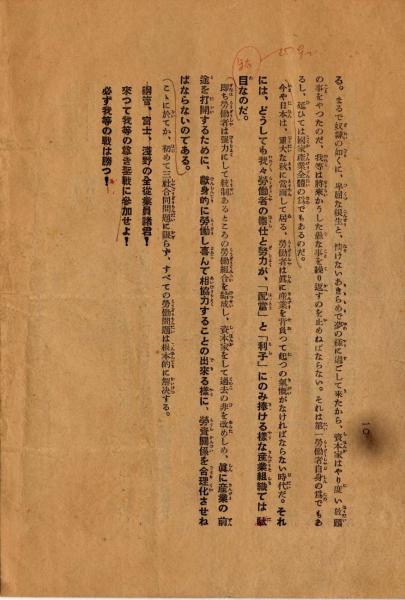 一〇
る。まるで奴隷の如くに、卑屈な根生と、情けないあきらめで夢の様に過ごして來たから、資本家はやり度い放題
の事をやつたのだ、我等は將來かうした愚な事を繰り返すのを止めねばならない。それは第一勞働者自身の爲でもあ
るし、延ひては國家產業全體の爲でもあるのだ。
今や日本は、重大な秋に當面して居る、勞働者は眞に產業を背負つて起つの氣慨がなければならない時代だ。それ
には、どうしても我々勞働者の奉仕と努力が、「配當」と「利子」にのみ捧ける樣な產業組織では駄
目なのだ。
卽ち勞働者は强力にして統制あるところの勞働組合を結成し、資本家をして過去の非を改めしめ、眞に產業の前
途を打開するために、獻身的に勞働し喜んで相協力することの出來る樣に、勞資關係を合理化させね
ばならないのである。
こゝに於てか、初めて三社合同問題に限らず、すべての勞働問題は根本的に解決する。
鋼管、富士、淺野の全從業員諸君！
來つて我等の尊き聖戰に參加せよ！
必ず我等の戰は勝つ！